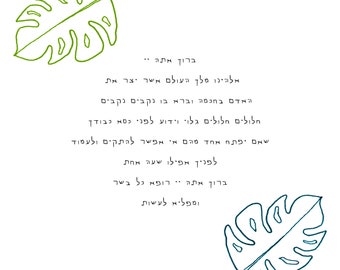 ברוך אתה יי
אלהינו מלך העולם אשר יצר את
האדם בחכמה וברא בו נקבים נקבים
חלולים חלולים גלוי וידוע לפני כסא כבודך
שאם יפתח אחד מהם אי אפשר להתקים ולעמוד
לפניך אפילו שעה אחת
ברוך אתה יי רופא כל בשר
ומפליא לעשות